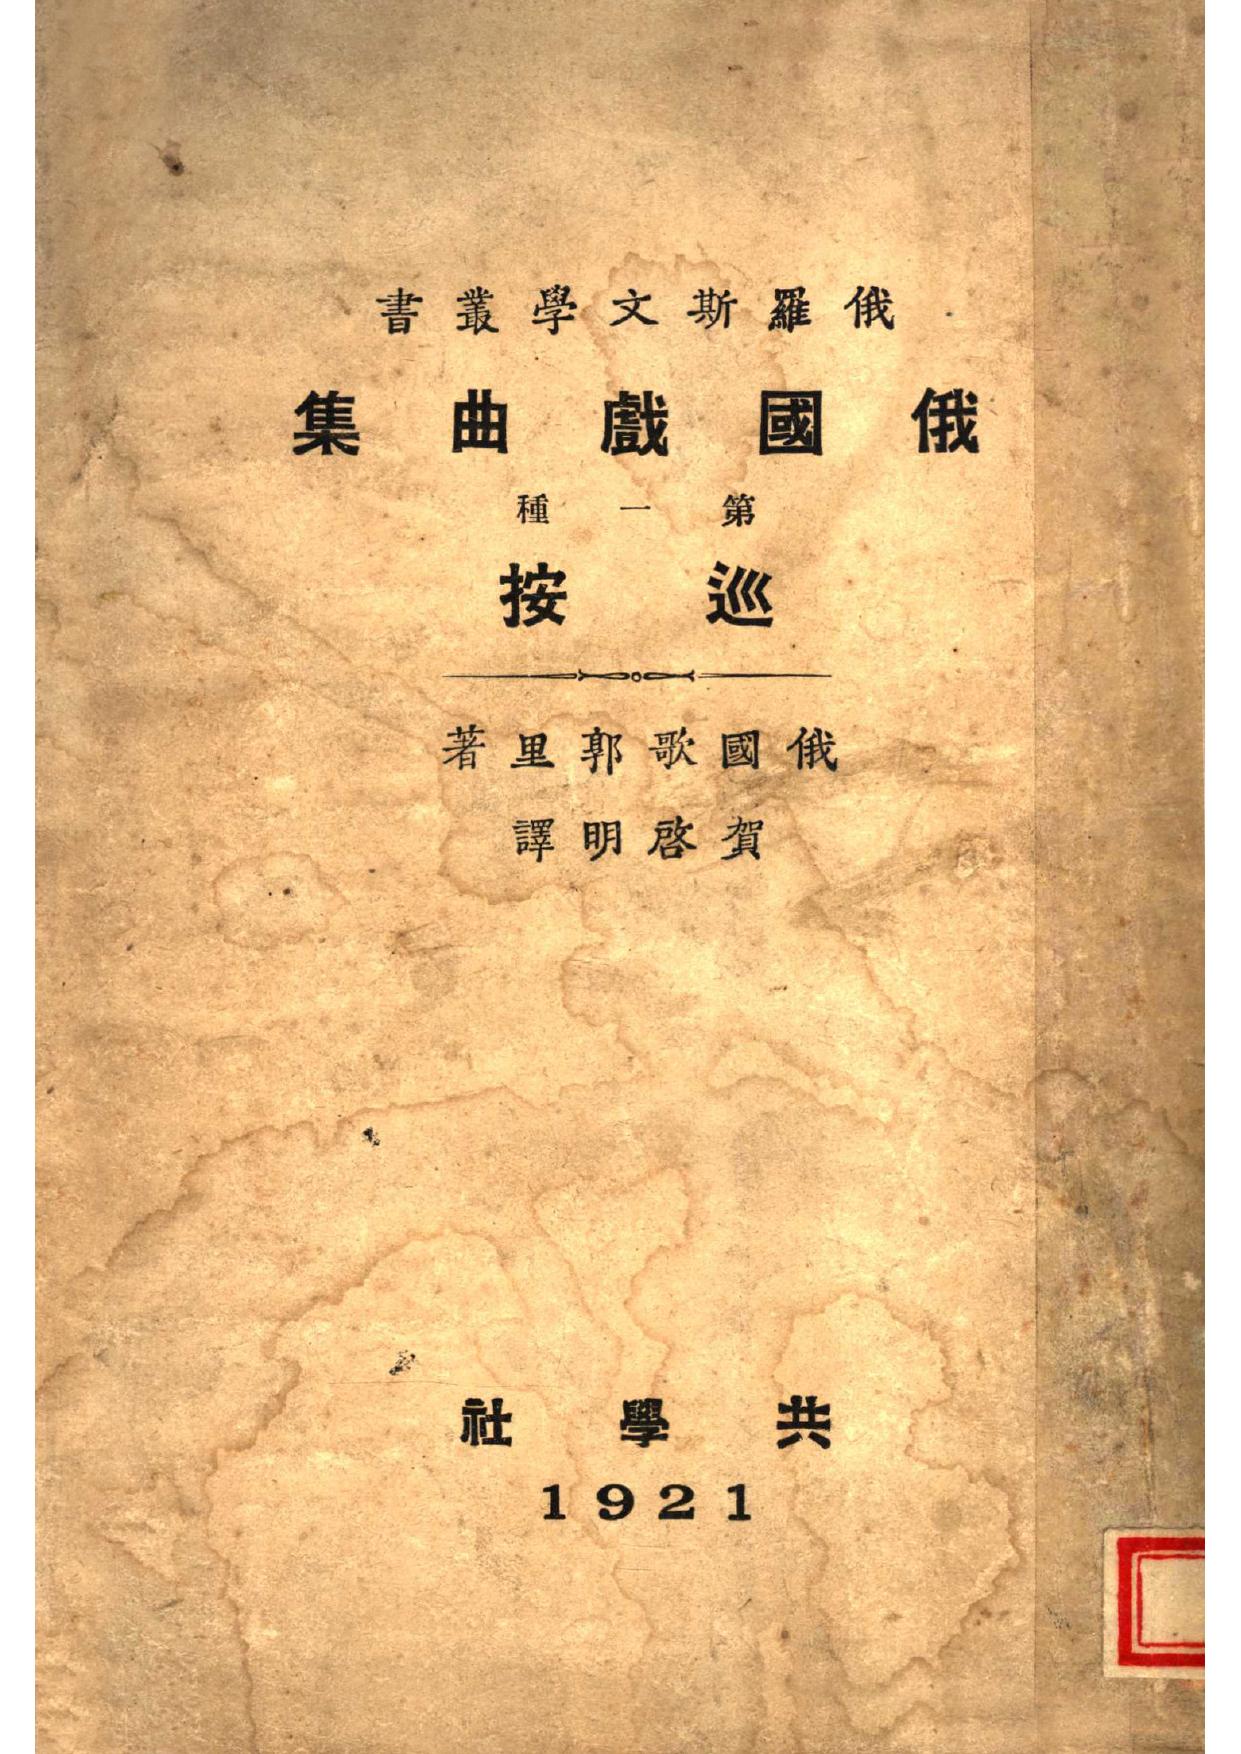 俄羅斯文學叢書
俄國戲曲集
第一種
巡按
俄國歌郭里著
賀啓明譯
共學社
1921